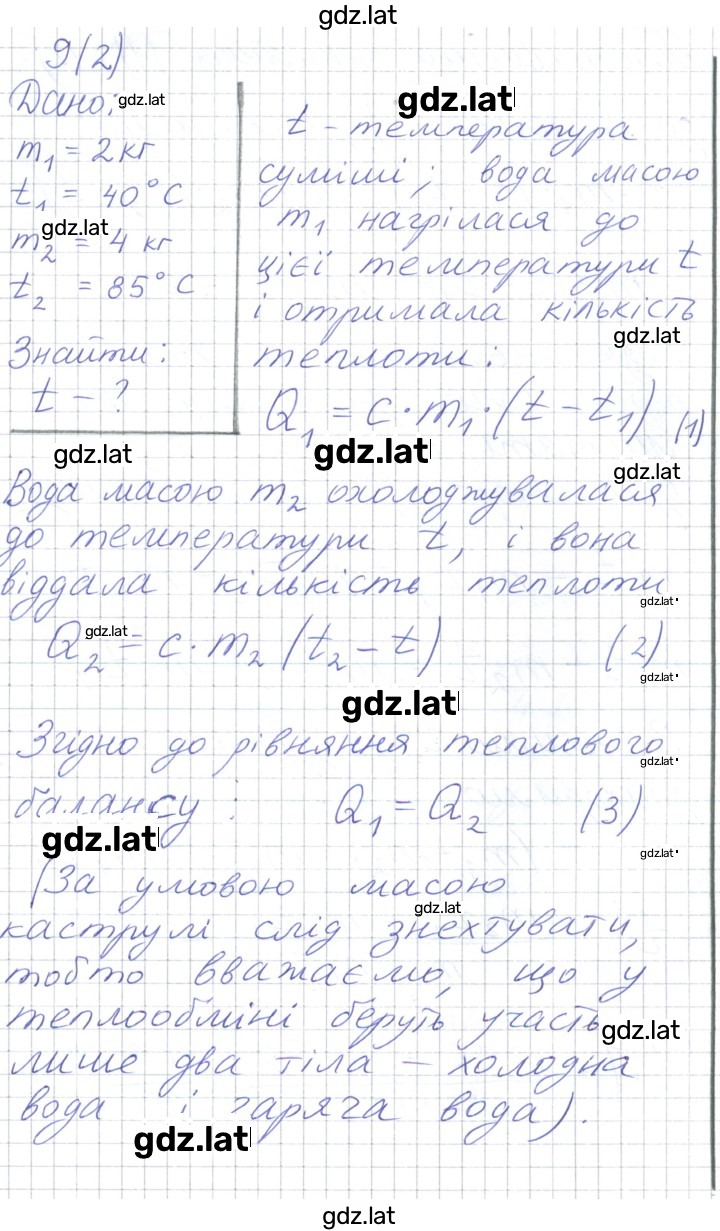 gdz.lat
9(2)
Дано: gdz.lat
m₁ = 2 кг
t₁ = 40°C
gdz.lat
m₂ = 4 кг
t₂ = 85°C
Знайти:
t - ?
gdz.lat
t - температура
суміші; вода масою
m₁ нагрілася до
цієї температури t
і отримала кількість
gdz.lat
теплоти:
Q₁ = c · m₁ · (t - t₁) (1)
gdz.lat gdz.lat gdz.lat
Вода масою m₂ охолоджувалася
до температури t, і вона
віддала кількість теплоти
gdz.lat
Q₂ = c · m₂ (t₂ - t) (2)
gdz.lat gdz.lat
gdz.lat
Згідно до рівняння теплового
gdz.lat
балансу: Q₁ = Q₂ (3)
gdz.lat gdz.lat
(За умовою масою
gdz.lat
каструлі слід знехтувати,
тобто вважаємо, що у
теплообміні беруть участь
gdz.lat
лише два тіла – холодна
вода і гаряча вода).
gdz.lat
gdz.lat